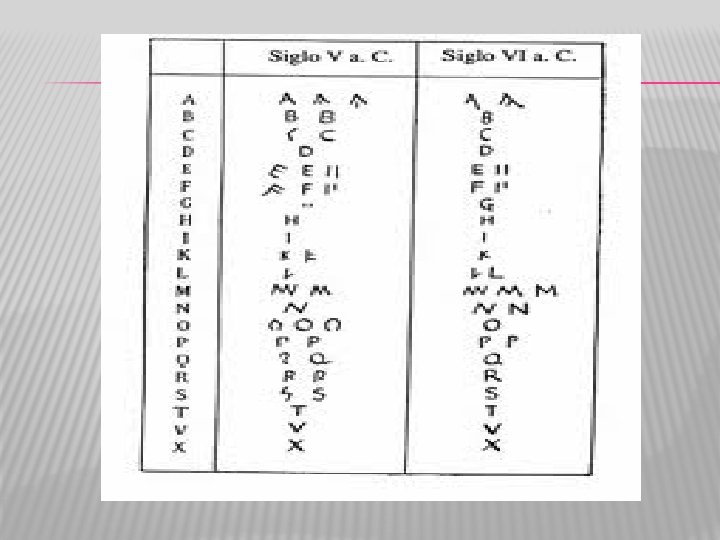 Siglo V a. C. Siglo VI a. C.
A A A A A A
B B B B
C C C C
D D D
E E E II E II
F F F I' F I'
G G
H H H
I I I
K K K K
L L L L
M M M M M M
N N N N
O O O O O
P P P P P
Q Q Q
R R R R
S S S S
T T T
V V V
X X X